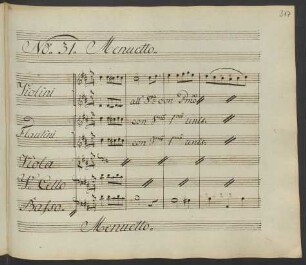 317
No. 31. Menuetto.
Violini
all 8va con Primo
Flautini
con Vno 1mo unis.
con Vno 1mo unis.
Viola
Vcello
Basso.
Menuetto.